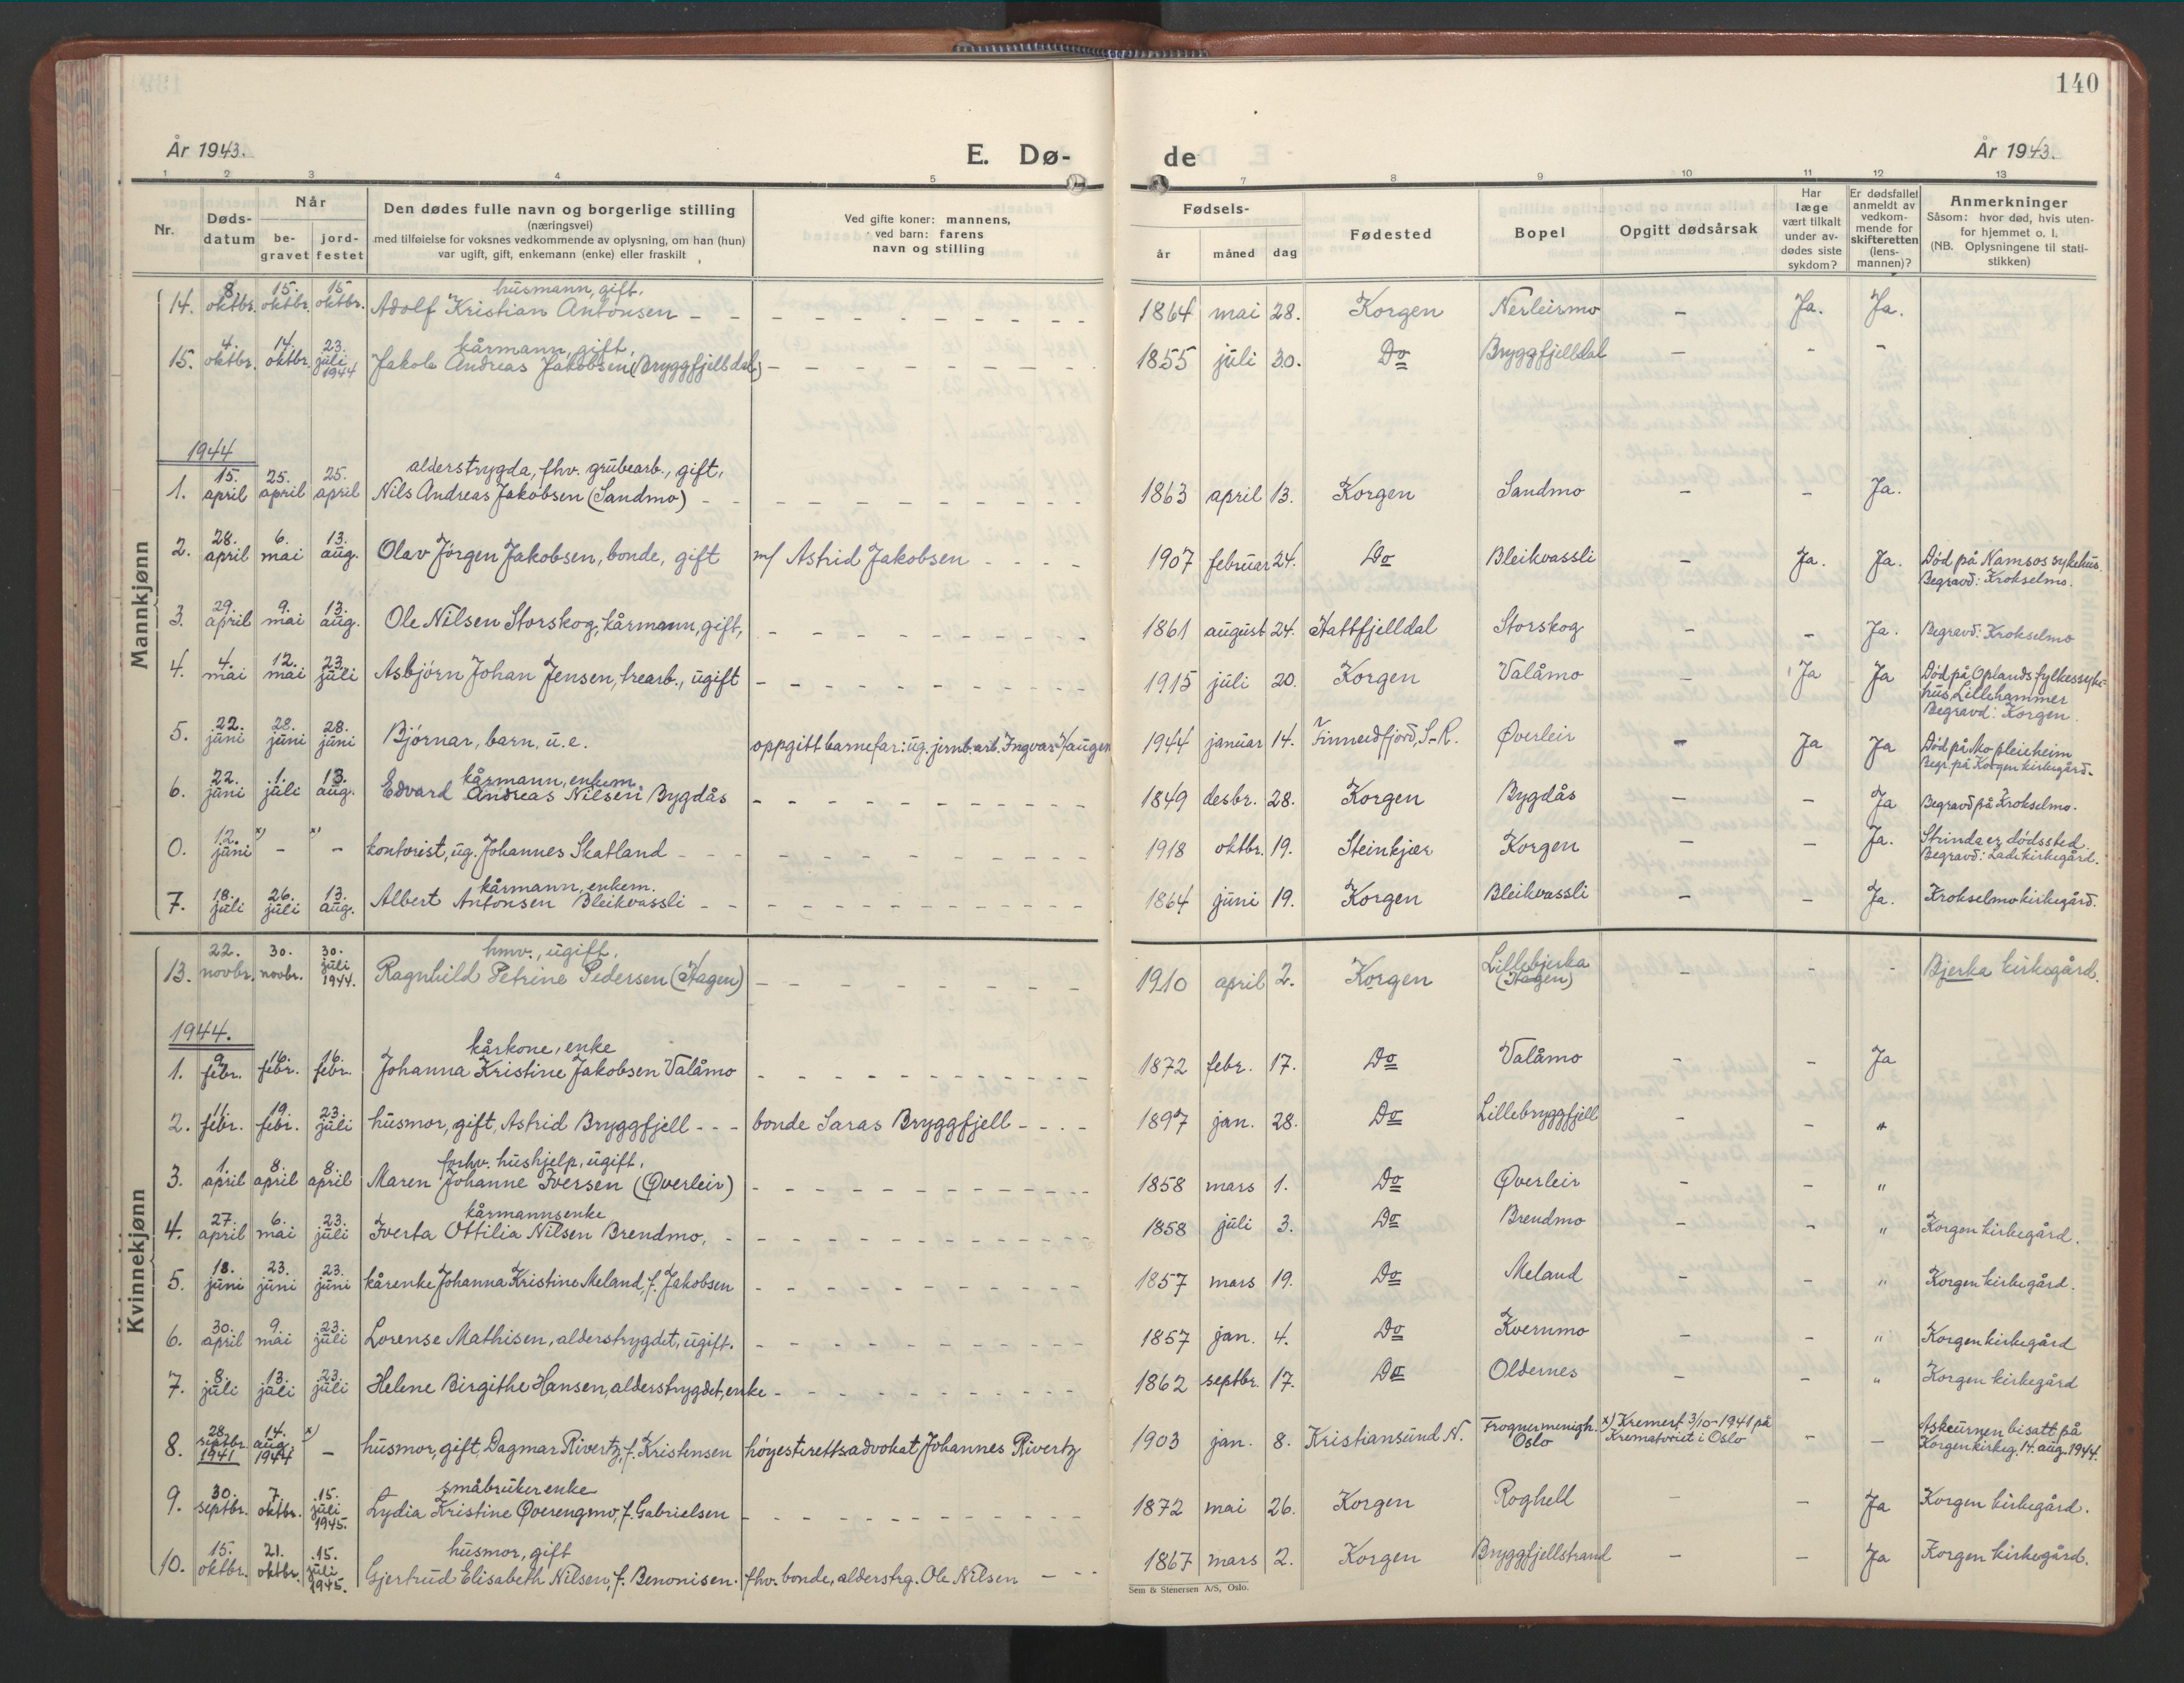 140
År 1943.
E. Dø-
de
År 1943.
1 2 3 4 5 7 8 9 10 11 12 13
Nr.
Døds-
datum
Når
be-
gravet
jord-
festet
Den dødes fulle navn og borgerlige stilling
(næringsvei)
med tilføielse for voksnes vedkommende av oplysning, om han (hun)
var ugift, gift, enkemann (enke) eller fraskilt
Ved gifte koner: mannens,
ved barn: farens
navn og stilling
Fødsels-
år måned dag
Fødested
Bopel
Opgitt dødsårsak
Har
læge
vært tilkalt
under av-
dødes siste
sykdom?
Er dødsfallet
anmeldt av
vedkom-
mende for
skifteretten
(lens-
mannen)?
Anmerkninger
Såsom: hvor død, hvis uten-
for hjemmet o. l.
(NB. Oplysningene til stati-
stikken)
Mannkjønn
husmann, gift,
14. 8. oktbr. 15. oktbr. 15. oktbr. Adolf Kristian Antonsen - - 1864 mai 28. Korgen Nerleirmo - Ja. Ja.
kårmann, gift,
15. 4. oktbr. 14. oktbr. 23. juli 1944 Jakob Andreas Jakobsen (Bryggfjelldal) - 1855 juli 30. Do Bryggfjelldal - - -
1944
alderstrygda, fhv. grubearb., gift,
1. 15. april 25. april 25. april Nils Andreas Jakobsen (Sandmo) - - 1863 april 13. Korgen Sandmo - - Ja.
2. 28. april 6. mai 13. aug. Olav Jörgen Jakobsen, bonde, gift m/ Astrid Jakobsen - - - - 1907 februar 24. Do Bleikvassli - Ja. Ja. Död på Namsos sykehus.
Begravd: Krokselmo.
3. 29. april 9. mai 13. aug. Ole Nilsen Storskog, kårmann, gift, - 1861 august 24. Hattfjelldal Storskog - - Ja. Begravd: Krokselmo
4. 4. mai 12. mai 23. juli Asbjörn Johan Jensen, trearb., ugift - 1915 juli 20. Korgen Valåmo - Ja Ja Död på Oplands fylkessyke-
hus, Lillehammer
Begravd: Korgen.
5. 22. juni 28. juni 28. juni Björnar, barn, u.e. oppgitt barnefar: ug. jernb.arb. Ingvar Haugen 1944 januar 14. Finneidfjord, S-R. Øverleir - Ja Ja Död på Mo pleieheim
Begr. på Korgen kirkegård.
kårmann, enkem.
6. 22. juni 1. juli 13. aug. Edvard Andreas Nilsen Bygdås - 1849 desbr. 28. Korgen Bygdås - - Ja Begravd på Krokselmo.
0. 12. juni x) - x) - kontorist, ug. Johannes Skatland - - - 1918 oktbr. 19. Steinkjer Korgen - - Ja. Strinda er dödssted.
Begravd: Lade kirkegård.
kårmann, enkem.
7. 18. juli 26. juli 13. aug. Albert Antonsen Bleikvassli - - 1864 juni 19. Korgen Bleikvassli - - Ja. Krokselmo kirkegård.
Kvinnekjønn
hmv., ugift,
13. 22. novbr. 30. novbr. 30. juli 1944. Ragnhild Petrine Pedersen (Hagen) - 1910 april 2. Korgen Lillebjerka (Hagen) - - - Bjerka kirkegård.
1944.
kårkone, enke
1. 9. febr. 16. febr. 16. febr. Johanna Kristine Jakobsen Valåmo - 1872 febr. 17. Do Valåmo - - Ja
2. 11. febr. 19. febr. 23. juli husmor, gift, Astrid Bryggfjell - - - bonde Saras Bryggfjell - - - - 1897 jan. 28. Do Lillebryggfjell - - "
forhv. hushjelp, ugift,
3. 1. april 8. april 8. april Maren Johanne Iversen (Øverleir) - 1858 mars 1. Do Øverleir - - "
kårmannsenke
4. 27. april 6. mai 23. juli Iverta Ottilia Nilsen Brendmo, - 1858 juli 3. Do Brendmo - - " Korgen kirkegård.
5. 18. juni 23. juni 23. juni kårenke Johanna Kristine Meland, f. Jakobsen - 1857 mars 19. Do Meland - - " Korgen kirkegård.
6. 30. april 9. mai 23. juli Lorense Mathisen, alderstrygdet, ugift. - 1857 jan. 4. Do Kvernmo - - " Korgen kirkegård
7. 8. juli 13. juli 23. juli Helene Birgithe Hansen, alderstrygdet, enke - 1862 septbr. 17. Do Oldernes - - " Korgen kirkegård
8. 28. septbr. 1941 14. aug. 1944 x) - husmor, gift, Dagmar Rivertz, f. Kristensen höyesterettsadvokat Johannes Rivertz 1903 jan. 8. Kristiansund N. Frognermenigh. Oslo x) Kremert 3/10-1941 på
Krematoriet i Oslo - - Askeurnen bisatt på
Korgen kirkeg. 14. aug. 1944.
småbrukerenke
9. 30. septbr. 7. oktbr. 15. juli 1945. Lydia Kristine Øverengmo, f. Gabrielsen - 1872 mai 26. Korgen Roghell - - Ja Korgen kirkegård.
husmor, gift
10. 15. oktbr. 21. oktbr. 15. juli 1945. Gjertrud Elisabeth Nilsen, f. Benonisen. fhv. bonde, alderstrg. Ole Nilsen - - - 1867 mars 2. Korgen Bryggfjellstrand - - Ja Korgen kirkegård.
Sem & Stenersen A/S, Oslo.